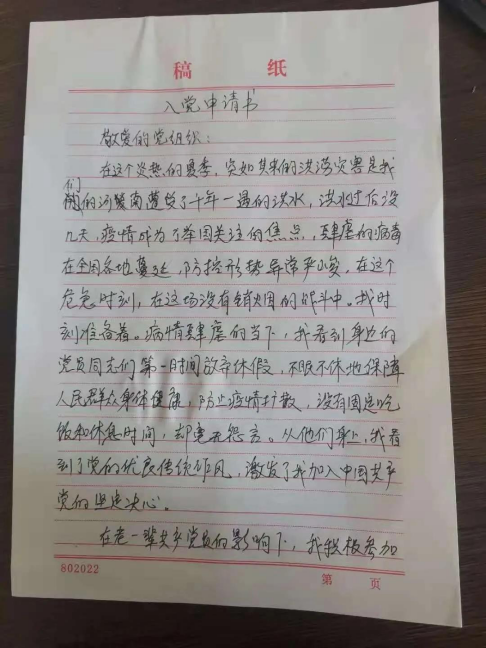 稿 纸
入党申请书
敬爱的党组织：
在这个炎热的夏季，突如其来的洪涝灾害是我
们
的河南遭受了十年一遇的洪水，洪水过后没
几天，疫情成为了举国关注的焦点，肆虐的病毒
在全国各地蔓延，防控形势异常严峻，在这个
危急时刻，在这场没有硝烟的战斗中。我时
刻准备着。病情肆虐的当下，我看到身边的
党员同志们第一时间放弃休假，不眠不休地保障
人民群众身体健康，防止疫情扩散，没有固定吃
饭和休息时间，却毫无怨言。从他们身上，我看
到了党的优良传统作风，激发了我加入中国共产
党的坚定决心。
在老一辈共产党员的影响下，我积极参加
802022
第 页